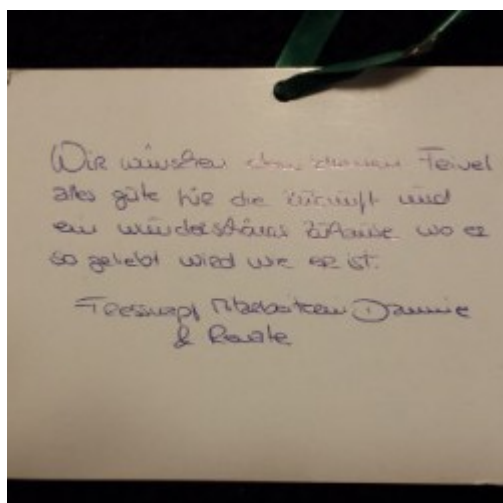 Wir wünschen dem kleinen Feivel
alles gute für die zukunft und
ein wunderschönes Zuhause wo er
so geliebt wird wie er ist.
Fressnapf Mitarbeiterin
& Renate